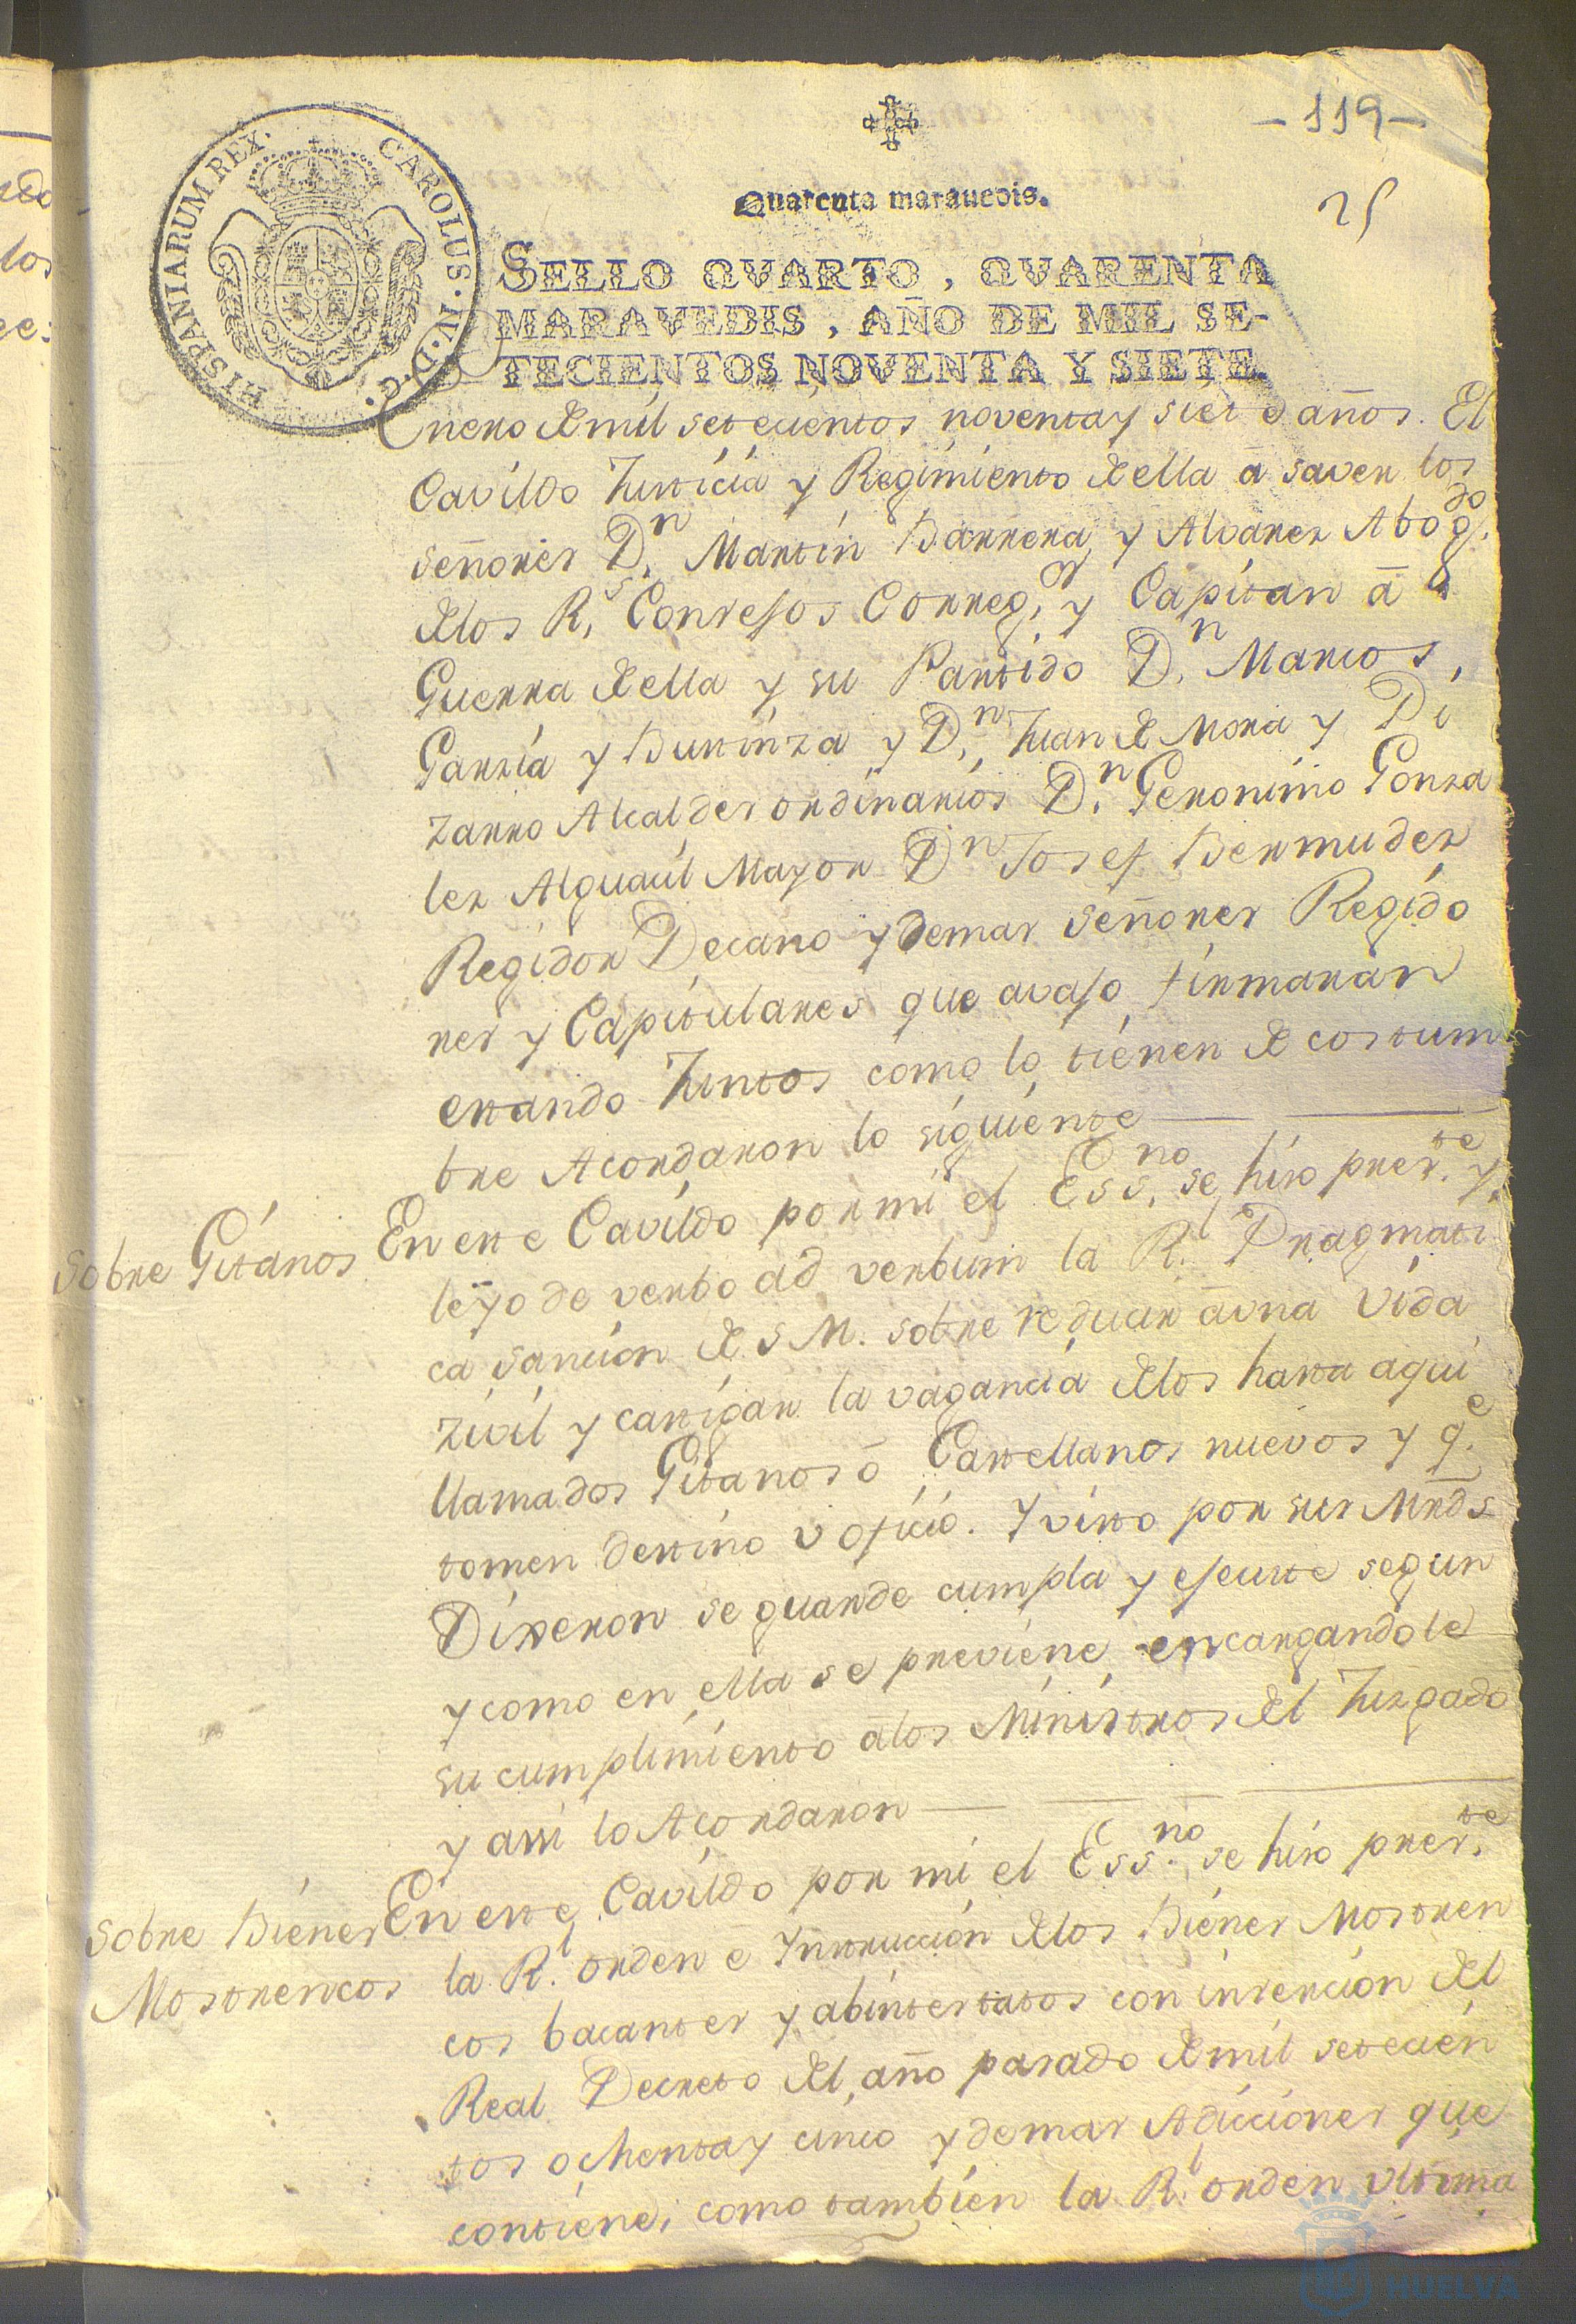 -119-
25
Quarenta maravedis.
HISPANIARUM REX. CAROLUS. IV. D. G.
SELLO QVARTO, QVARENTA
MARAVEDIS, AÑO DE MIL SE-
TECIENTOS NOVENTA Y SIETE.
Enero de mil setecientos noventa y siete años. El
Cavildo Justicia y Regimiento de ella â saver los
señores Dn. Martin Barrera y Alvarez Abogdo.
de los Rs. Consejos Corregor. y Capitan â
Guerra de ella y su Partido Dn. Marcos
Garzia y Burinza y Dn. Juan de Mora y Pi
zarro Alcaldes ordinarios Dn. Geronimo Gonza
lez Alguacil Mayor Dn Josef Bermudez
Regidor Decano y demas señores Regido
res y Capitulares que avajo firmaràn
estando Juntos como lo tienen de costum
bre Acordaron lo siguiente
Sobre Gitanos
En este Cavildo por mi el Essno. se hizo preste. y
leyo de verbo ad verbum la Rl. Pragmati
ca sancion de S M. sobre reducir â una vida
zivil y castigar la vagancia de los hasta aqui
llamados Gitanos ô Castellanos nuevos y qe.
tomen destino v oficio. Y visto por sus Mrds
Dixeron se guarde cumpla y ejecute segun
y como en ella se previene encargandole
su cumplimiento â los Ministros del Juzgado
y assi lo Acordaron
Sobre Bienes
Mostrencos
En este Cavildo por mi el Essno. se hizo preste.
la Rl. orden e Ynstruccion de los Bienes Mostren
cos bacantes y abintestatos con insercion del
Real Decreto del año pasado de mil setecien
tos ochenta y cinco y demas Adicciones que
contiene, como tambien la Rl. orden vltima
HUELVA